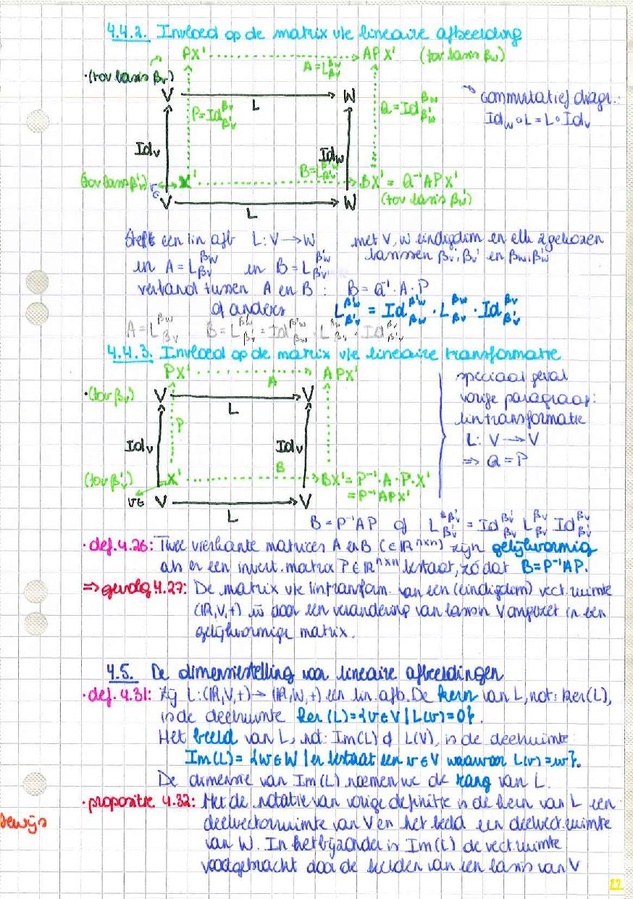 4.4.2. Invloed op de matrix v/e lineaire afbeelding
PX' APX' (tov basis βw)
(tov basis βv) A = L
V L W
P = Id Q = Id
→ commutatief diagr.:
Idw ∘ L = L ∘ Idv
Idv Idw
B = L
(tov basis β'v) X' BX' = Q⁻¹APX'
V L W (tov basis β'w)
een lin afb L: V → W met V, W eindigdim en elk 2 gekozen
en A = L en B = L bassissen βv, β'v en βw, β'w
verband tussen A en B: B = Q⁻¹·A·P
of anders L = Id · L · Id
A = L B = L = Id · L · Id
4.4.3. Invloed op de matrix v/e lineaire transformatie
PX' A APX'
(tov βv) V L V
P
Idv Idv
speciaal geval
vorige paragraaf:
lintransformatie
L: V → V
⇒ Q = P
(tov β'v) X' B BX' = P⁻¹·A·P·X'
= P⁻¹APX'
V L V
B = P⁻¹AP of L = Id L Id
• def. 4.26: Twee vierkante matrices A en B (∈ ℝⁿˣⁿ) zijn gelijkvormig
als er een invert. matrix P ∈ ℝⁿˣⁿ bestaat, zó dat B = P⁻¹AP.
⇒ gevolg 4.27: De matrix v/e lintransform. van een (eindigdim) vect. ruimte
(ℝ,V,+) is door een verandering van basis in V omgezet in een
gelijkvormige matrix.
4.5. De dimensiestelling voor lineaire afbeeldingen
• def. 4.31: Zij L: (ℝ,V,+) → (ℝ,W,+) een lin. afb. De kern van L, not: ker(L),
is de deelruimte Ker(L) = {v ∈ V | L(v) = 0}.
Het beeld van L, not: Im(L) of L(V), is de deelruimte:
Im(L) = {w ∈ W | er bestaat een v ∈ V waarvoor L(v) = w}.
De dimensie van Im(L) noemen we de rang van L.
• propositie 4.32: Met de notatie van vorige definitie is de kern van L een
Bewijs deelvectorruimte van V en het beeld een deelvect. ruimte
van W. In het bijzonder is Im(L) de vect. ruimte
voortgebracht door de beelden van een basis van V
22